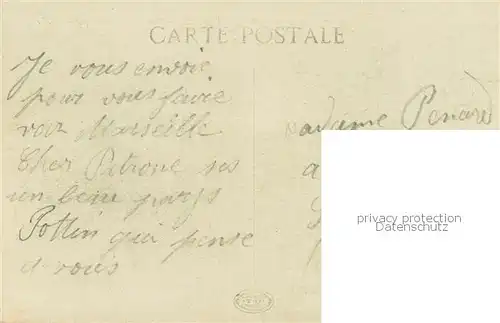 CARTE POSTALE
Je vous envoie
pour vous faire
voir Marseille
Cher Petrone ses
un beau pays
Pottin qui pense
a vous
Madame Penard
a
privacy protection
Datenschutz